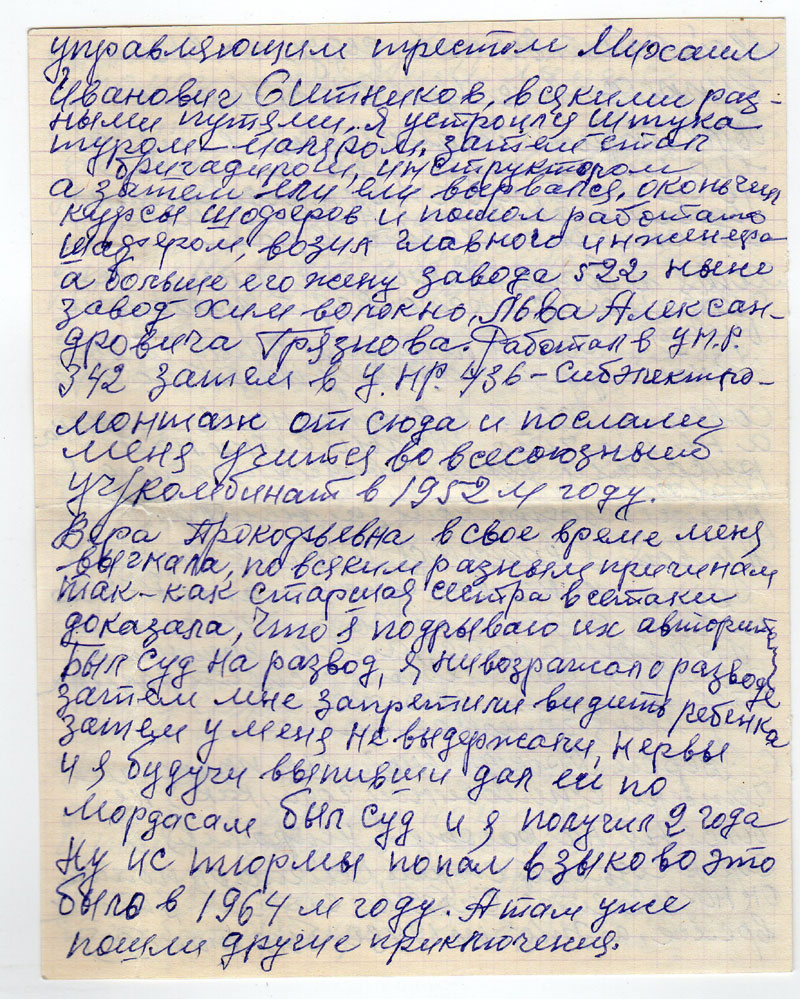 управляющим трестом Михаил
Иванович Ситников, всякими раз-
ными путями, я устроился штука
туром-маляром, затем стал
бригадиром, инструктором
а затем ели ели вырвался, окончил
курсы шоферов и пошол работать
шофером, возил главного инженера
а больше его жену завода 522 ныне
завод Химволокно, Льва Алексан-
дровича Грязнова. Работал в У.Н.Р.
342 затем в У.НР. 436-Сибэлектро-
монтаж от сюда и послали
меня учится во всесоюзный
уч/комбинат в 1952 м году.
Вера Прокофьевна в свое время меня
выгнала, по всяким разным причинам
так-как старшая сестра всетаки
доказала, что я подрываю их авторитет
был суд на развод, я нивозражал о разводе
затем мне запретили видить ребенка
затем у меня не выдержали, нервы
и я будучи выпивши дал ей по
мордасам был суд и я получил 2 года
Ну ис тюрмы попал в зыково это
было в 1964 м году. А там уже
пошли другие приключения.